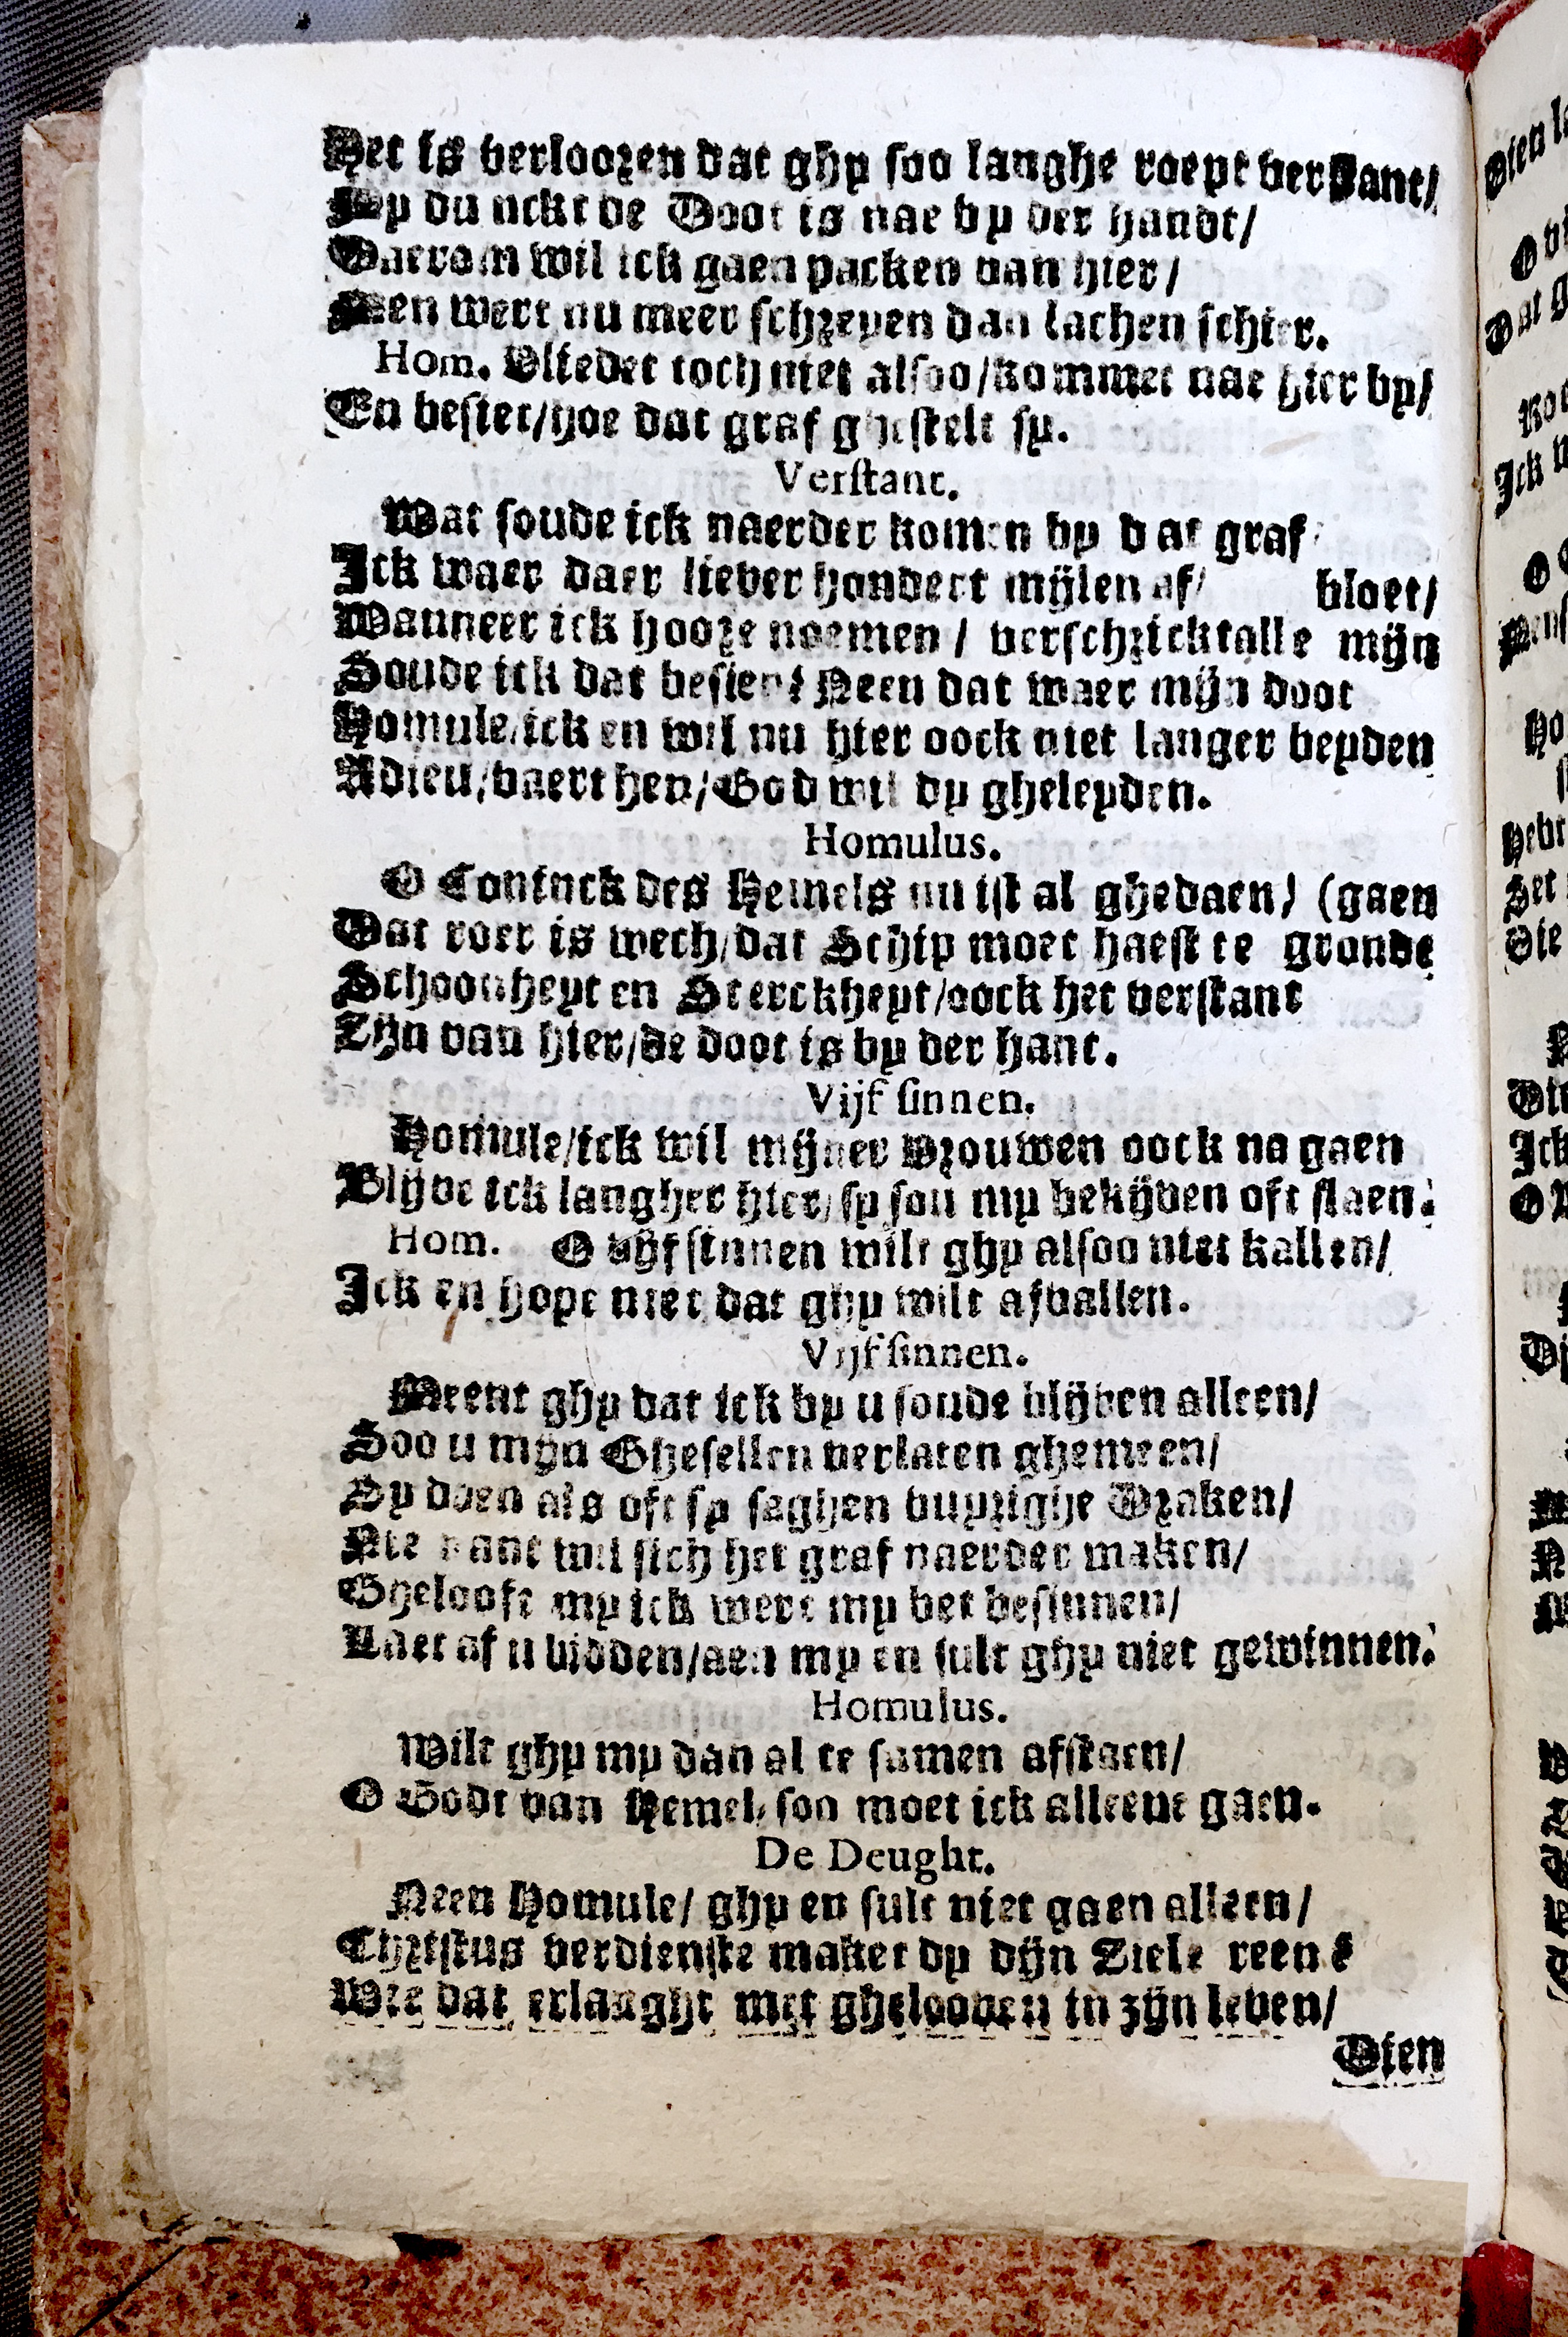 Het is verloozen dat ghy soo langhe roept verstant/
My dunckt de Doot is nae by der handt/
Daerom wil ick gaen packen van hier/
Men wert nu meer schreyen dan lachen schier.
Hom. Vliedet toch niet alsoo/kommet nae hier by/
En besiet/hoe dat graf ghestelt sy.
Verstant.
Wat soude ick naerder komen by dat graf
Ick waer daer liever hondert mijlen af/ bloet/
Wanneer ick hoore noemen / verschrickt alle mijn
Soude ick dat besien? Neen dat waer mijn doot
Homule/ick en wil nu hier oock niet langer beyden
Adieu/vaert hen/God wil dy gheleyden.
Homulus.
O Coninck des Hemels nu ist al ghedaen/ (gaen
Dat roer is wech/dat Schip moet haest te gronde
Schoonheyt en Sterckheyt/oock het verstant
Zijn van hier/de doot is by der hant.
Vijf sinnen.
Homule/ick wil mijner Vrouwen oock na gaen
Blijve ick langher hier/sy sou my bekijven oft slaen.
Hom. O vijf sinnen wilt ghy alsoo niet kallen/
Ick en hope niet dat ghy wilt afvallen.
Vijf sinnen.
Meent ghy dat ick by u soude blijven alleen/
Soo u mijn Ghesellen verlaten ghemeen/
Sy doen als oft sy saghen vuyrighe Draken/
Niemant wil sich het graf naerder maken/
Ghelooft my ick wert my bet besinnen/
Laet af u bidden/aen my en sult ghy niet gewinnen.
Homulus.
Wilt ghy my dan al te samen afstaen/
O Godt van Hemel, soo moet ick alleene gaen.
De Deught.
Neen Homule/ ghy en sult niet gaen alleen/
Christus verdienste maket dy dijn Ziele reen:
Wie dat erlanght met ghelooven in zijn leven/
Dien